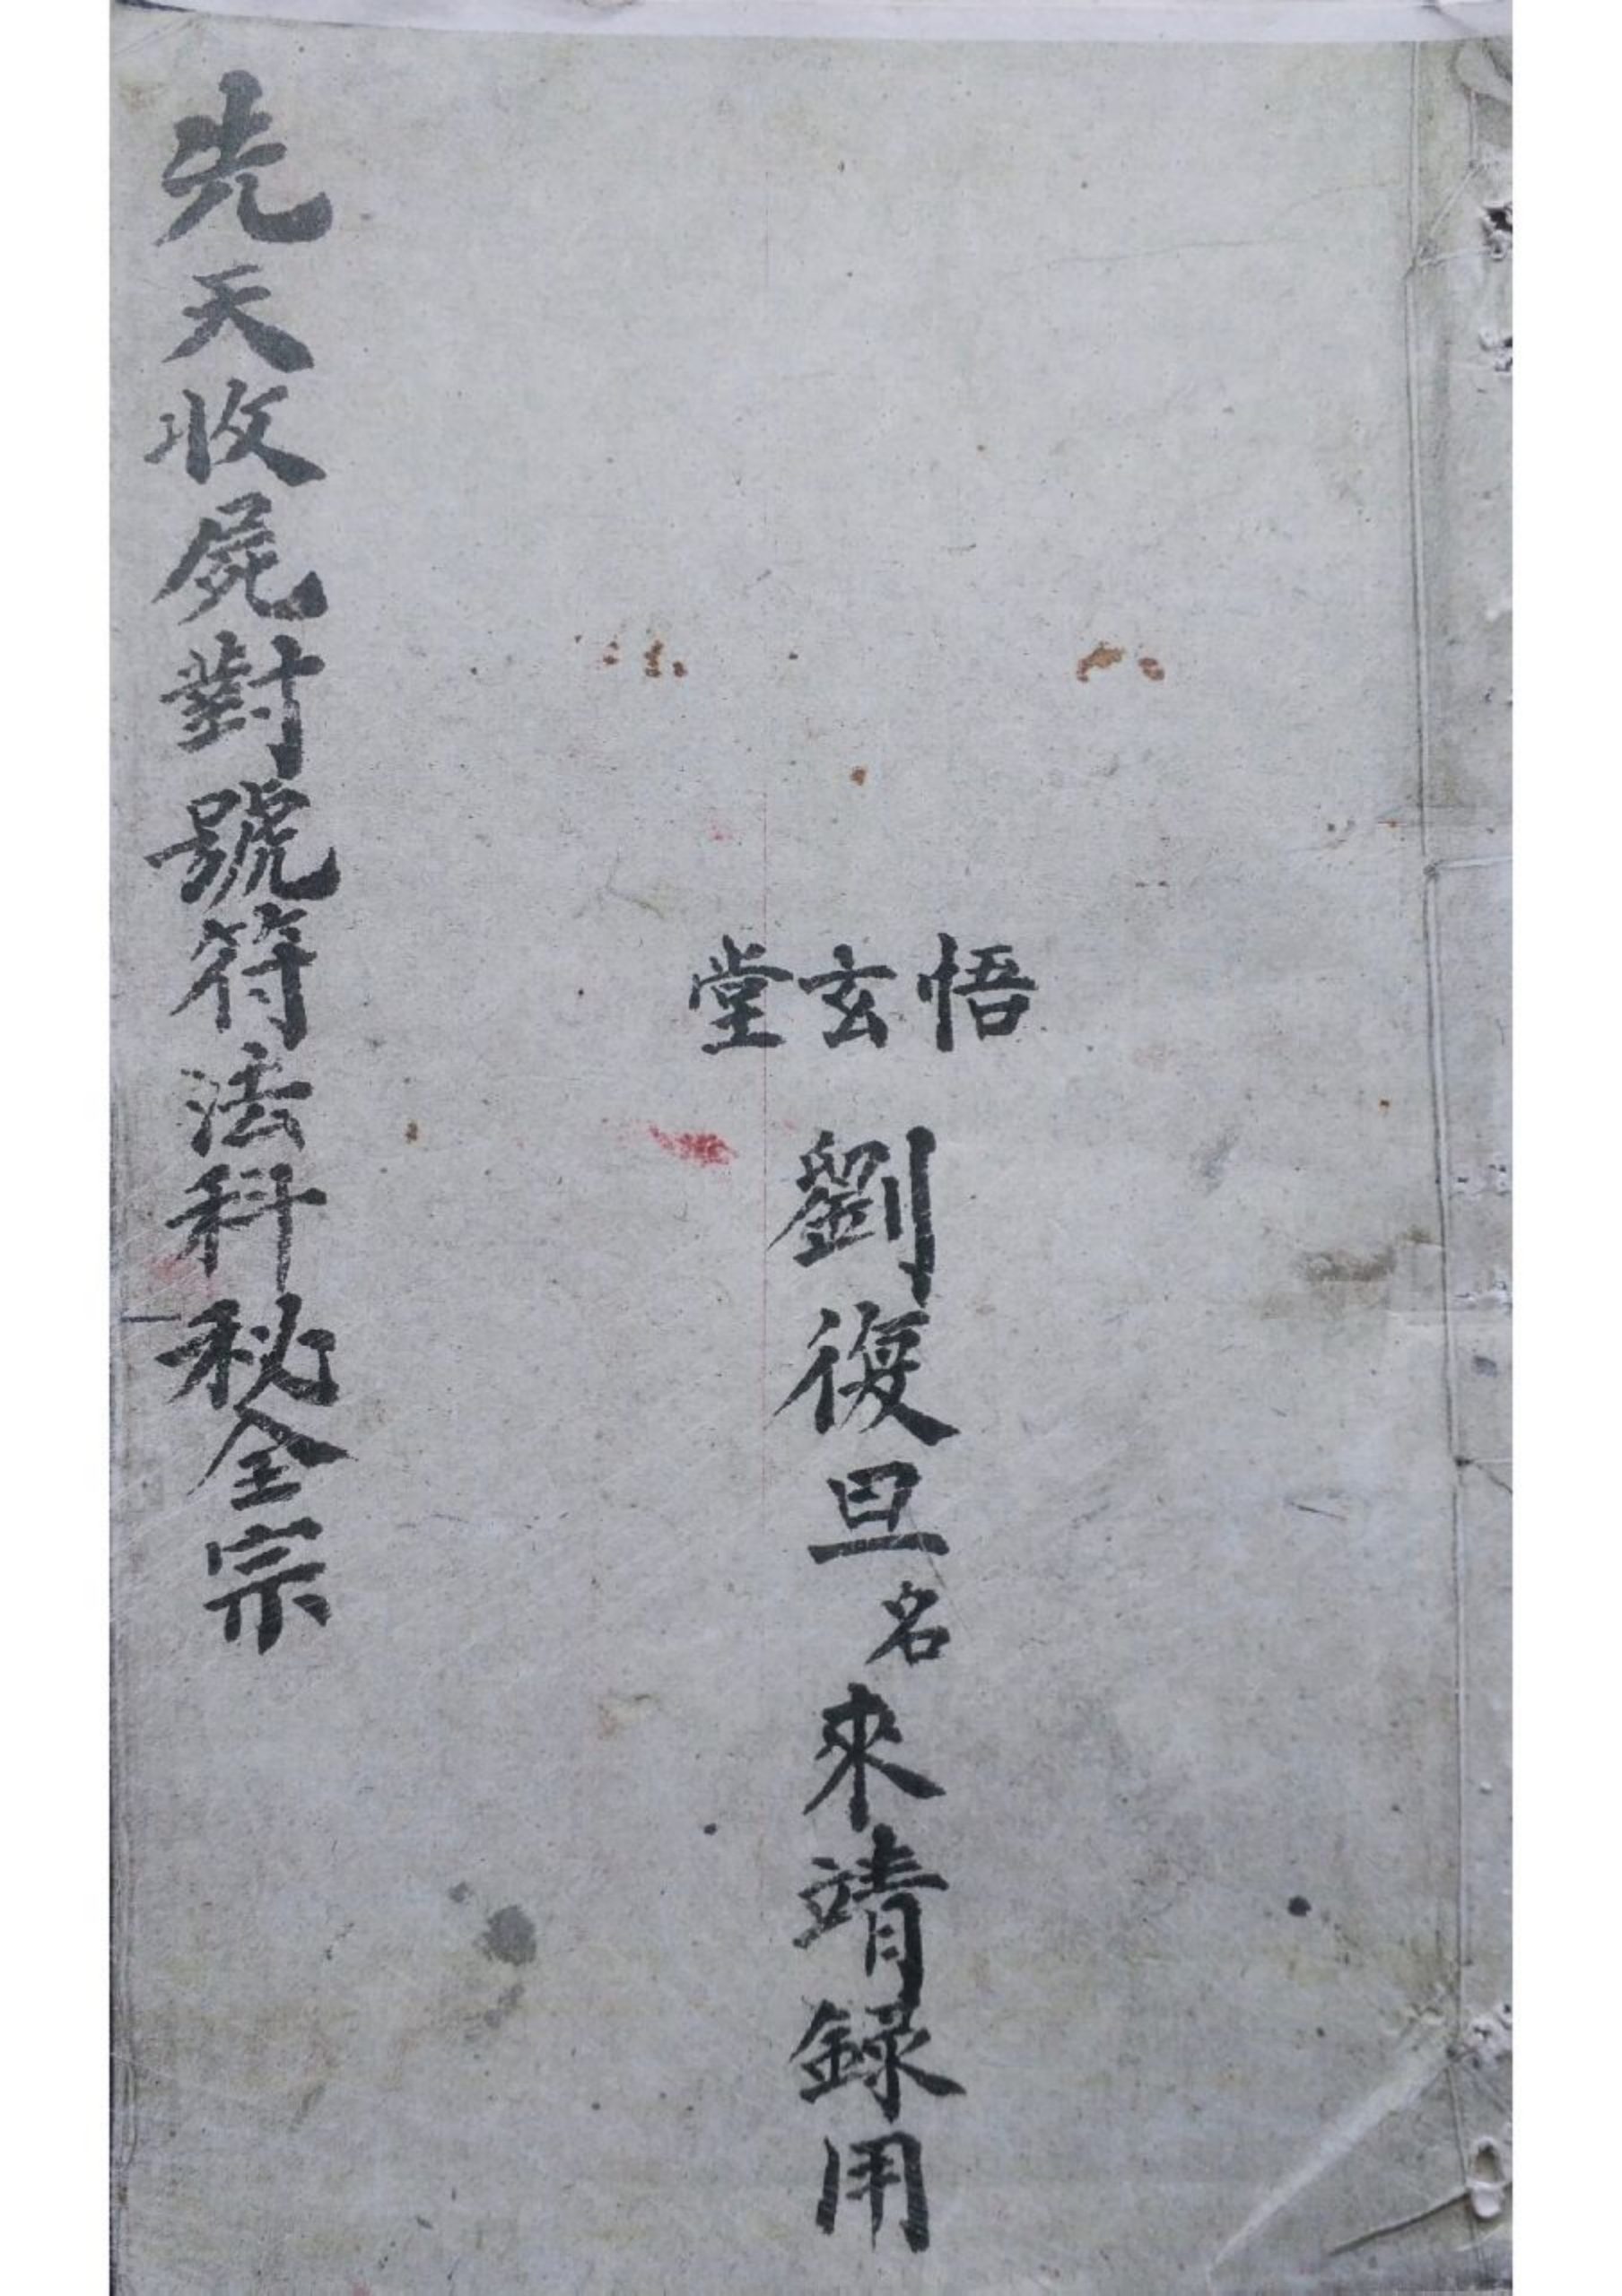 悟玄堂
劉復旦名來靖録用
先天收屍對號符法科秘全宗